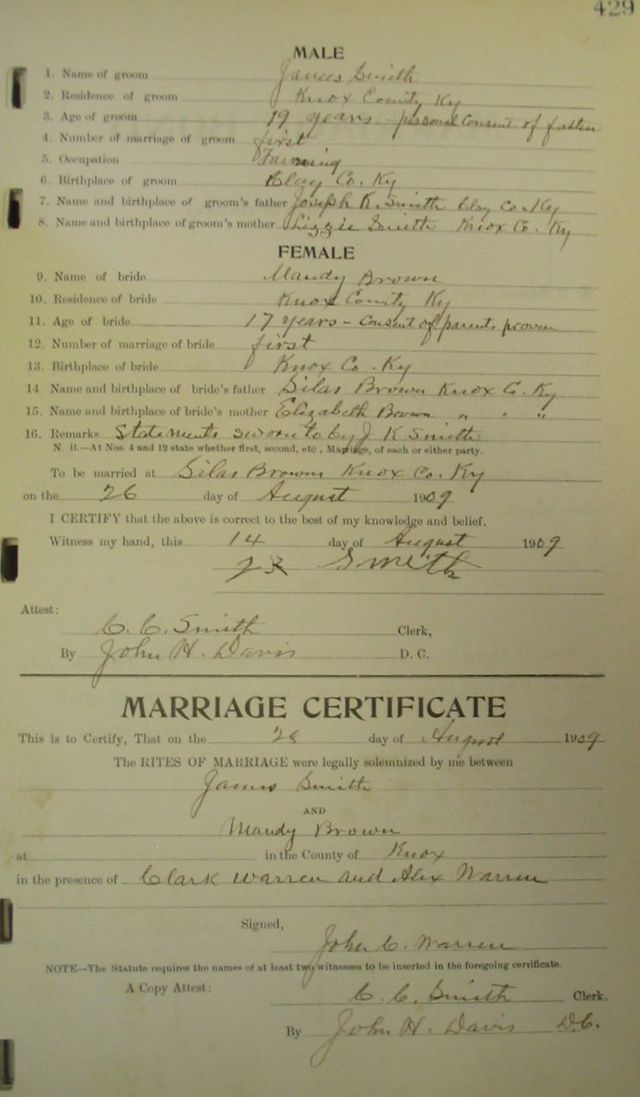 429
MALE
1. Name of groom James Smith
2. Residence of groom Knox County Ky
3. Age of groom 19 years - personal Consent of father
4. Number of marriage of groom first
5. Occupation Farming
6. Birthplace of groom Clay Co. Ky
7. Name and birthplace of groom's father Joseph K. Smith Clay Co. Ky
8. Name and birthplace of groom's mother Lizzie Smith Knox Co. Ky
FEMALE
9. Name of bride Mandy Brown
10. Residence of bride Knox County Ky
11. Age of bride 17 years - Consent of parents proven
12. Number of marriage of bride first
13. Birthplace of bride Knox Co. Ky
14 Name and birthplace of bride's father Silas Brown Knox Co. Ky
15. Name and birthplace of bride's mother Elizabeth Brown " " "
16. Remarks Statements sworn to by J K Smith
N. B.—At Nos. 4 and 12 state whether first, second, etc., Marriage, of each or either party.
To be married at Silas Browns Knox Co. Ky
on the 26 day of August 1909
I CERTIFY that the above is correct to the best of my knowledge and belief.
Witness my hand, this 14 day of August 1909
Smith
Attest:
C. C. Smith Clerk,
By John H. Davis D. C.
MARRIAGE CERTIFICATE
This is to Certify, That on the 28 day of August 1909
The RITES OF MARRIAGE were legally solemnized by me between
James Smith
AND
Mandy Brown
at in the County of Knox
in the presence of Clark Warren and Alex Warren
Signed,
John C. Warren
NOTE—The Statute requires the names of at least two witnesses to be inserted in the foregoing certificate.
A Copy Attest:
C. C. Smith Clerk.
By John H. Davis D.C.